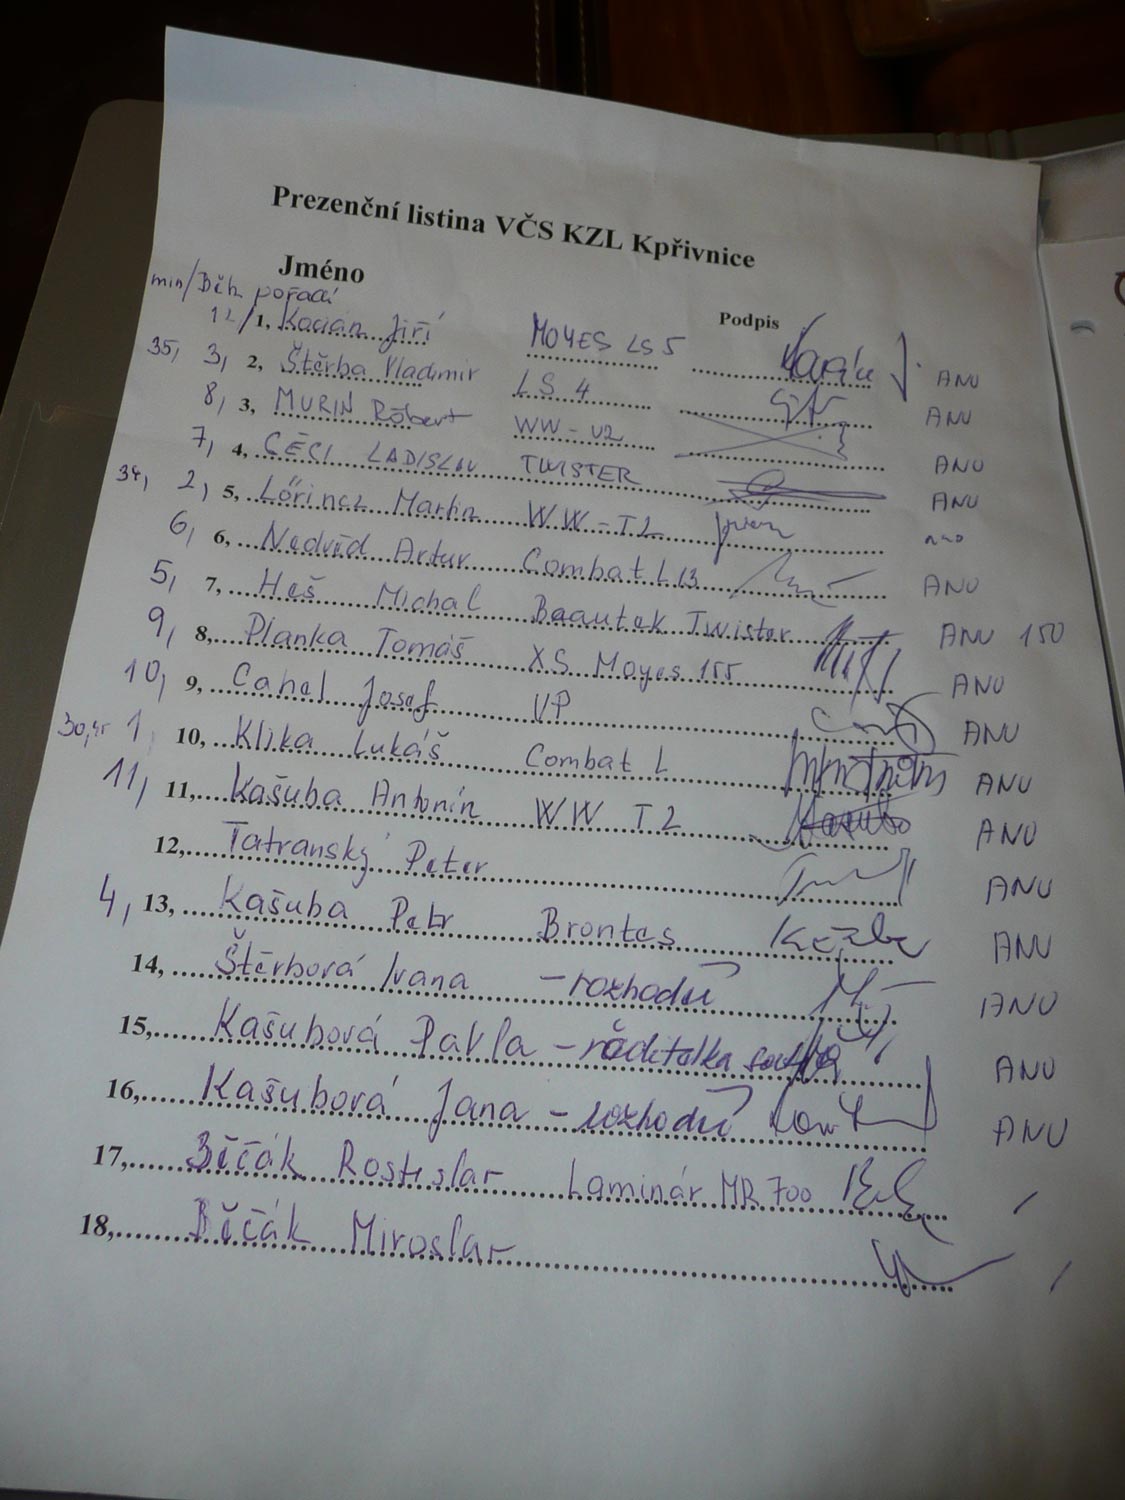 Prezenční listina VČS KZL Kpřivnice
Jméno
min/Běh pořadí Podpis
12/ 1, Kacián Jiří MOYES LS 5 ANO
35, 3, 2, Štěrba Vladimir LS 4 ANO
8, 3, MURIŇ Róbert WW-U2 ANO
7, 4, CÉCI LADISLAV TWISTER ANO
34, 2, 5, Lőrincz Martin WW-T2 ano
6, 6, Nedvěd Artur Combat L 13 ANO
5, 7, Heš Michal Baautek Twister ANO 150
9, 8, Planka Tomáš XS Moyes 155 ANO
10, 9, Canel Josef VP ANO
1, 10, Klika Lukáš Combat L ANO
11, 11, Kašuba Antonín WW T2 ANO
12, Tatranský Peter ANO
4, 13, Kašuba Petr Brontes ANO
14, Štěrbová Ivana – rozhodčí ANO
15, Kašubová Pavla – ANO
16, Kašubová Jana – rozhodčí ANO
17, Běčák Rostislav Laminár MR 700
18, Běčák Miroslav